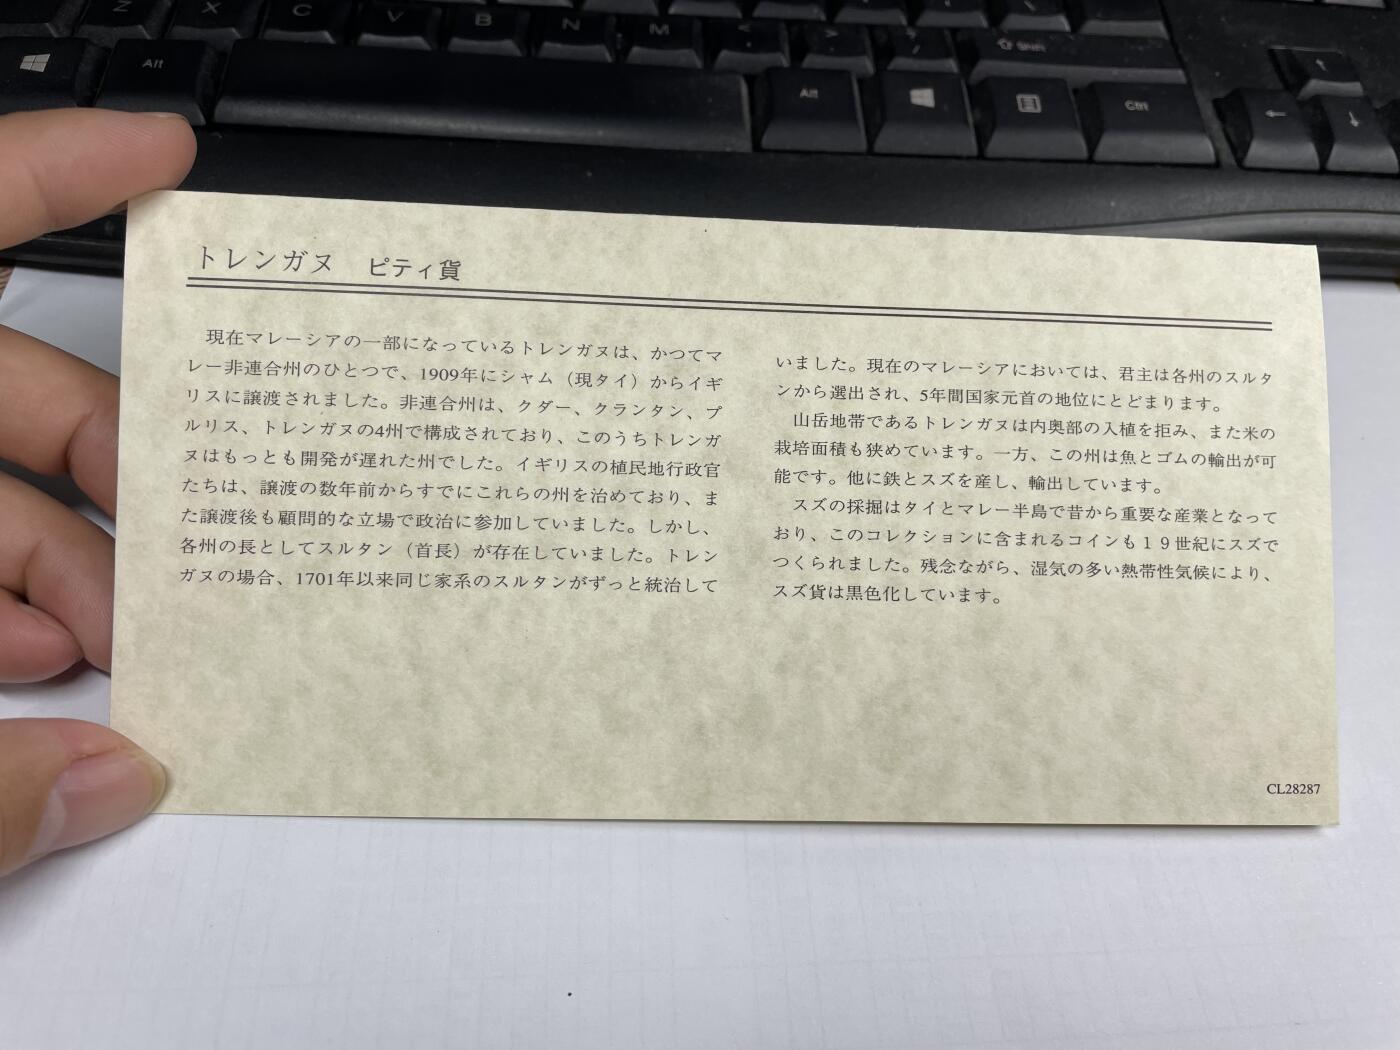 Z
X
C
V
B
N
M
<
>
?
/
Shift
Alt
Alt
Ctrl
トレンガヌ ピティ貨
現在マレーシアの一部になっているトレンガヌは、かつてマ
レー非連合州のひとつで、1909年にシャム（現タイ）からイギ
リスに譲渡されました。非連合州は、クダー、クランタン、プ
ルリス、トレンガヌの4州で構成されており、このうちトレンガ
ヌはもっとも開発が遅れた州でした。イギリスの植民地行政官
たちは、譲渡の数年前からすでにこれらの州を治めており、ま
た譲渡後も顧問的な立場で政治に参加していました。しかし、
各州の長としてスルタン（首長）が存在していました。トレン
ガヌの場合、1701年以来同じ家系のスルタンがずっと統治して
いました。現在のマレーシアにおいては、君主は各州のスルタ
ンから選出され、5年間国家元首の地位にとどまります。
山岳地帯であるトレンガヌは内奥部の入植を拒み、また米の
栽培面積も狭めています。一方、この州は魚とゴムの輸出が可
能です。他に鉄とスズを産し、輸出しています。
スズの採掘はタイとマレー半島で昔から重要な産業となって
おり、このコレクションに含まれるコインも１９世紀にスズで
つくられました。残念ながら、湿気の多い熱帯性気候により、
スズ貨は黒色化しています。
CL28287